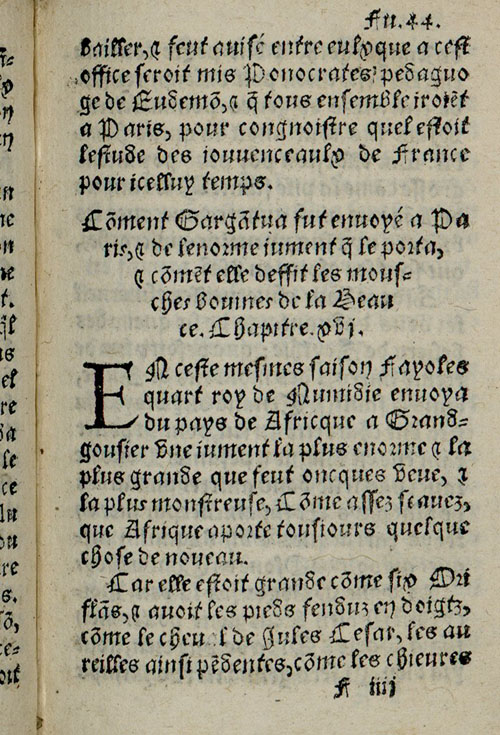 Fu.44.
bailler, & feut auisé entre eulx que a cest
office seroit mis Ponocrates, pedaguo
ge de Eudemõ, & q̃ tous ensemble iroiẽt
a Paris, pour congnoistre quel estoit
lestude des iouuenceaulx de France
pour icelluy temps.
Cõment Gargãtua fut enuoyé a Pa
ris, & de lenorme iument q̃ le porta,
& cõmẽt elle deffit les mous=
ches bouines de la Beau
ce. Chapitre. xvj.
EN ceste mesmes saison Fayoles
quart roy de Numidie enuoya
du pays de Africque a Grand=
gousier vne iument la plus enorme & la
plus grande que feut oncques veue, &
la plus monstreuse, Cõme assez scauez,
que Afrique aporte tousiours quelque
chose de noueau.
Car elle estoit grande cõme six Ori
flãs, & auoit les pieds fenduz en doigtz,
cõme le cheu l de Jules Cesar, les au
reilles ainsi pẽdentes, cõme les chieures
F iiij